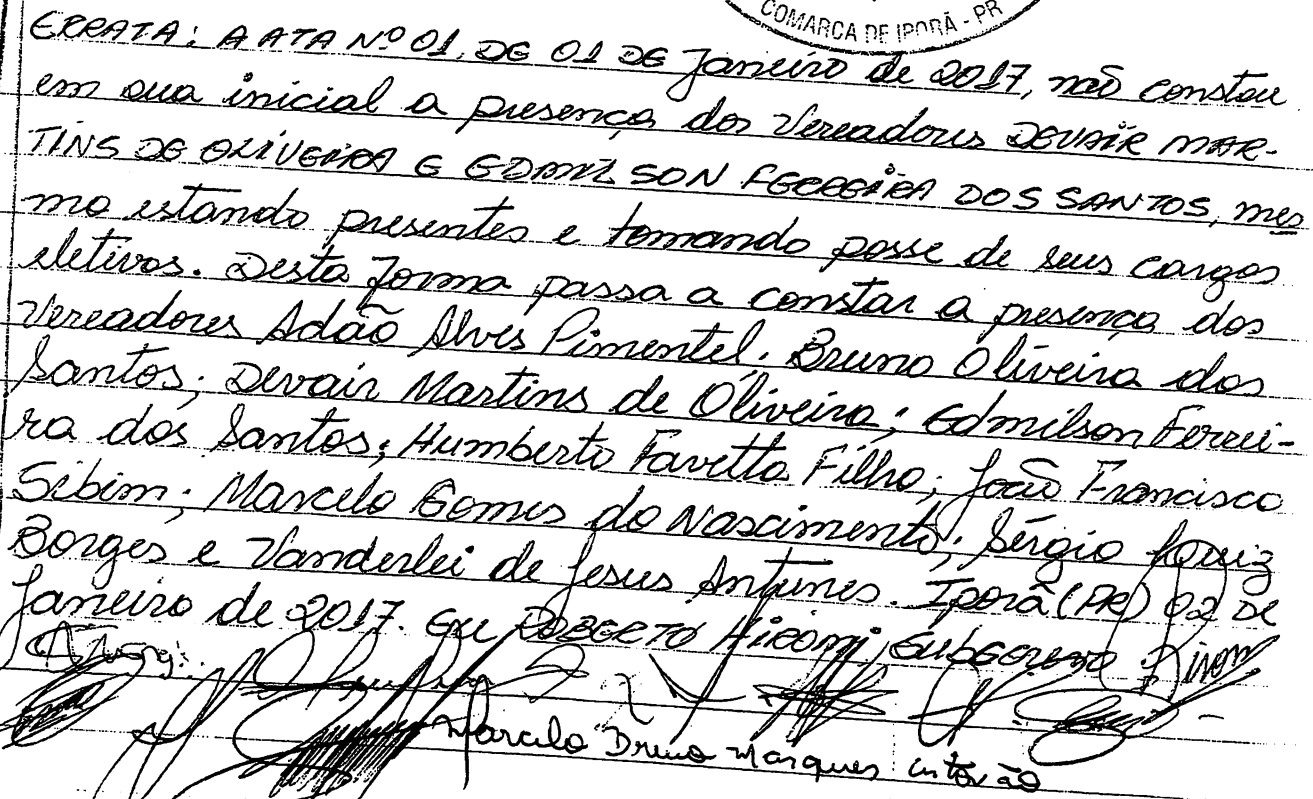 COMARCA DE IPORÃ - PR
ERRATA: A ATA Nº 01, DE 01 DE Janeiro de 2017, não constou
em sua inicial a presença dos Vereadores DEVAIR MAR-
TINS DE OLIVEIRA E EDMILSON FERREIRA DOS SANTOS, mes
mo estando presentes e tomando posse de seus cargos
eletivos. Desta forma passa a constar a presença dos
Vereadores Adão Alves Pimentel; Bruno Oliveira dos
Santos; Devair Martins de Oliveira; Edmilson Ferrei-
ra dos Santos; Humberto Favetta Filho; João Francisco
Sibim; Marcelo Gomes do Nascimento; Sérgio Luiz
Borges e Vanderlei de Jesus Antunes. Iporã (PR) 02 DE
Janeiro de 2017. Eu ROBERTO Hiromi, SUBSCREVO
Marcelo Bruno Marques